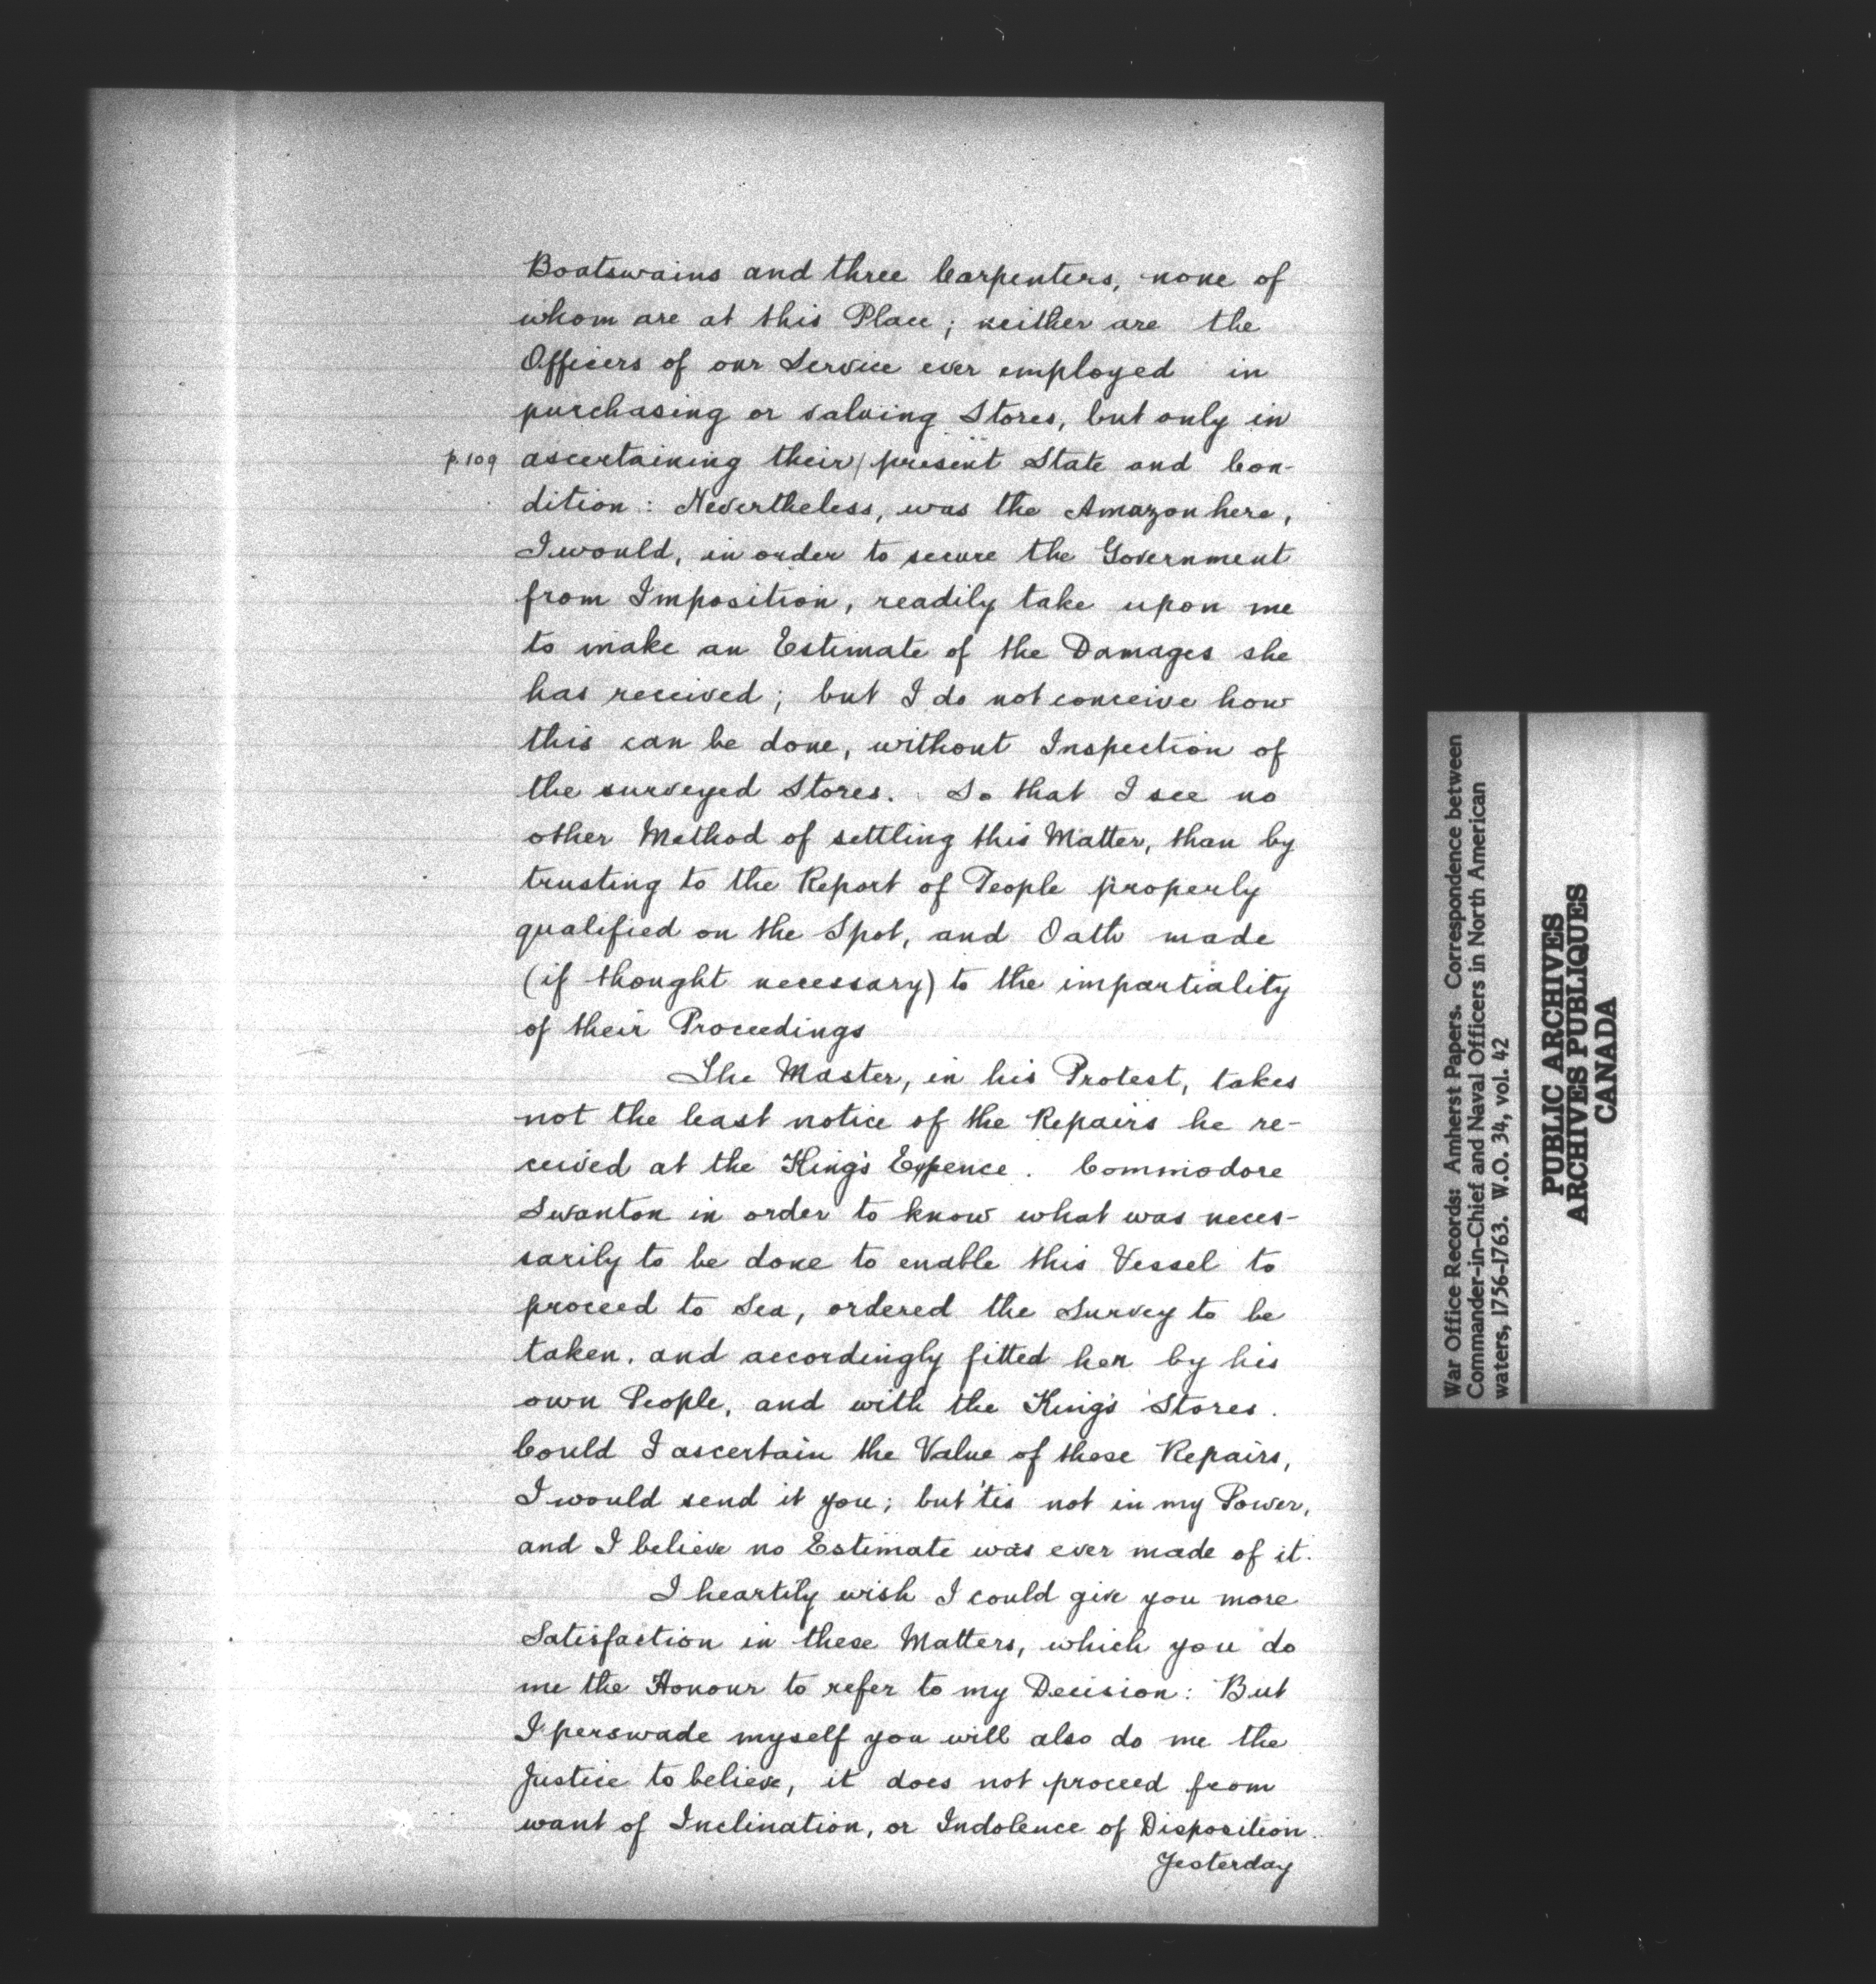 Boatswains and three Carpenters, none of
whom are at this Place; neither are the
Officers of our Service ever employed in
purchasing or valuing Stores, but only in
p.109 ascertaining their/present State and Con-
dition: Nevertheless, was the Amazon here,
I would, in order to secure the Government
from Imposition, readily take upon me
to make an Estimate of the Damages she
has received; but I do not conceive how
this can be done, without Inspection of
the surveyed Stores. So that I see no
other Method of settling this Matter, than by
trusting to the Report of People properly
qualified on the Spot, and Oath made
(if thought necessary) to the impartiality
of their Proceedings
The Master, in his Protest, takes
not the least notice of the Repairs he re-
ceived at the King's Expence. Commodore
Swanton in order to know what was neces-
sarily to be done to enable this Vessel to
proceed to Sea, ordered the Survey to be
taken, and accordingly fitted her by his
own People, and with the King's Stores.
Could I ascertain the Value of those Repairs,
I would send it you; but 'tis not in my Power,
and I believe no Estimate was ever made of it.
I heartily wish I could give you more
Satisfaction in these Matters, which you do
me the Honour to refer to my Decision: But
I perswade myself you will also do me the
Justice to believe, it does not proceed from
want of Inclination, or Indolence of Disposition.
Yesterday
War Office Records: Amherst Papers. Correspondence between
Commander-in-Chief and Naval Officers in North American
waters, 1756-1763. W.O. 34, vol. 42
PUBLIC ARCHIVES
ARCHIVES PUBLIQUES
CANADA